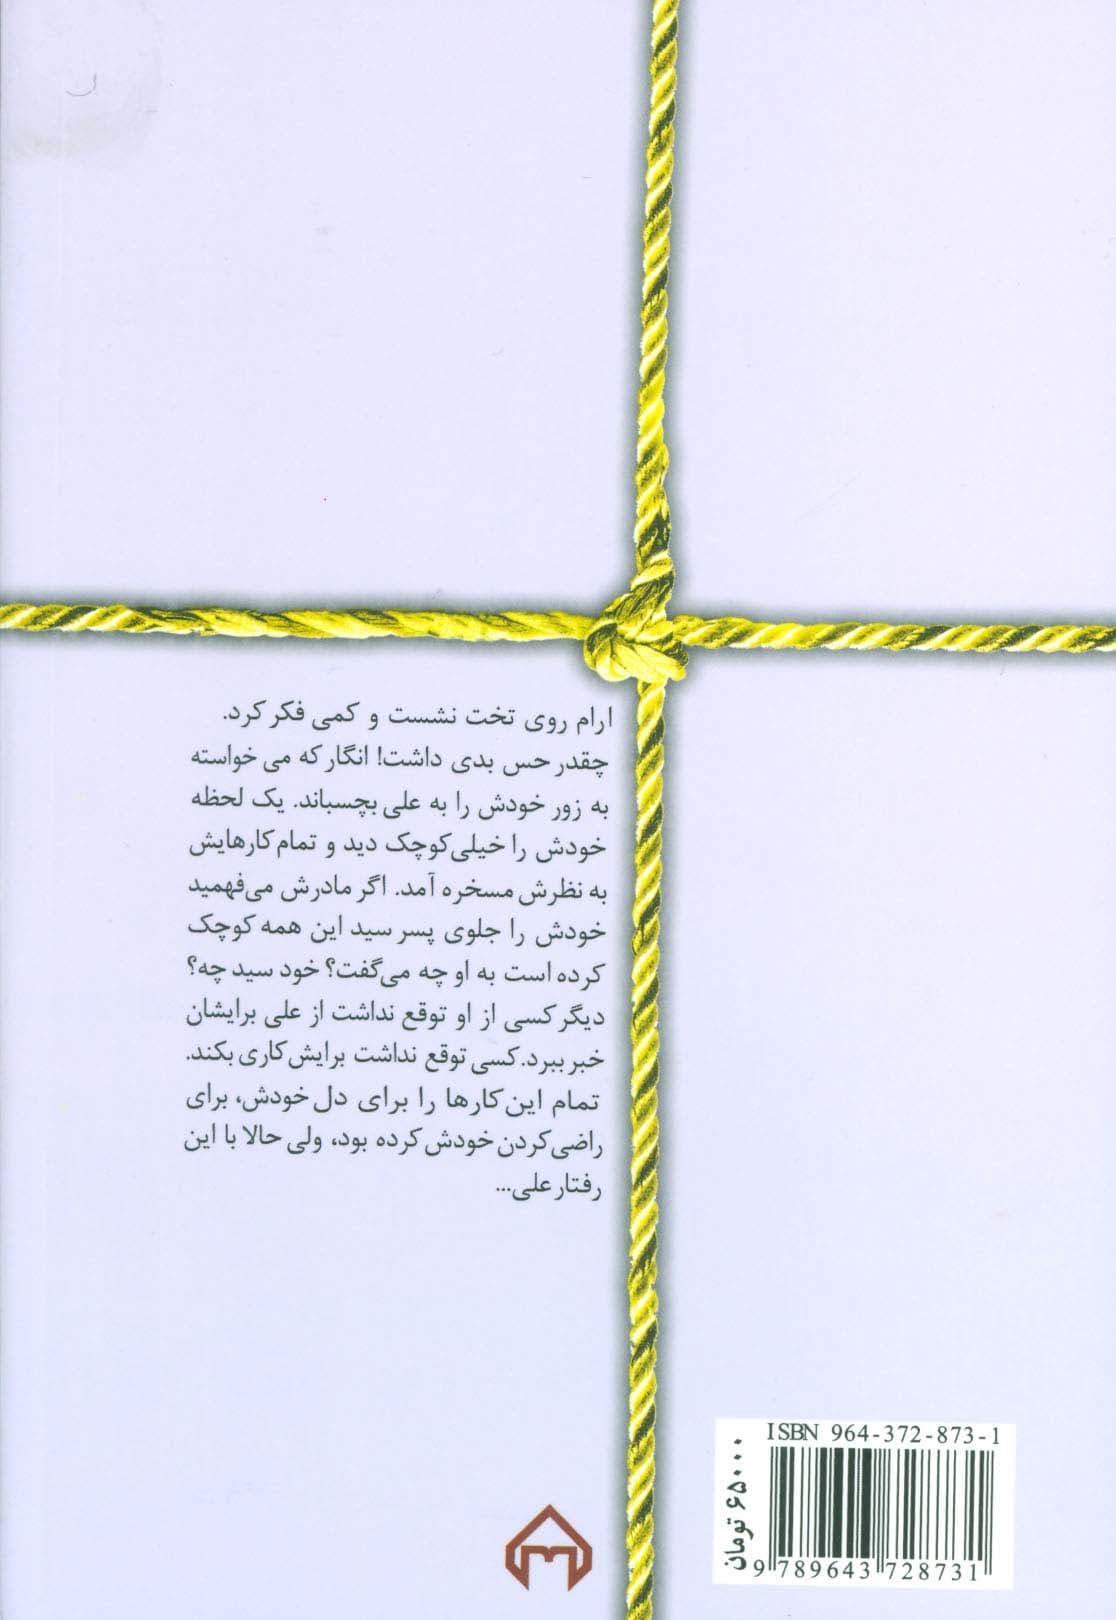 ارام روی تخت نشست و کمی فکر کرد.
چقدر حس بدی داشت! انگار که می خواسته
به زور خودش را به علی بچسباند. یک لحظه
خودش را خیلی کوچک دید و تمام کارهایش
به نظرش مسخره آمد. اگر مادرش می‌فهمید
خودش را جلوی پسر سید این همه کوچک
کرده است به او چه می‌گفت؟ خود سید چه؟
دیگر کسی از او توقع نداشت از علی برایشان
خبر ببرد. کسی توقع نداشت برایش کاری بکند.
تمام این کارها را برای دل خودش، برای
راضی کردن خودش کرده بود، ولی حالا با این
رفتار علی...
ISBN 964-372-873-1
۶۵۰۰۰ تومان
9 789643 728731